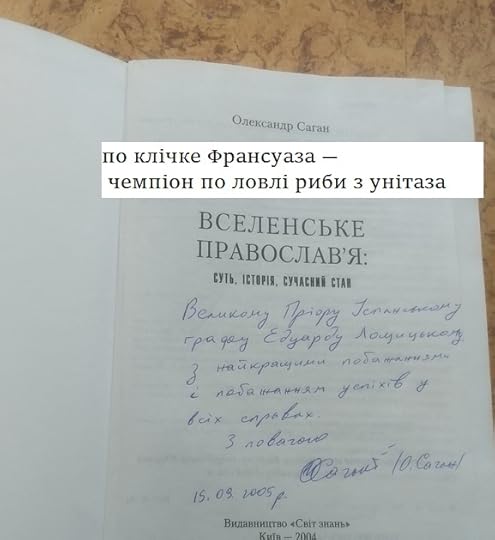 Олександр Саган
по клічке Франсуаза —
чемпіон по ловлі риби з унітаза
ВСЕЛЕНСЬКЕ
ПРАВОСЛАВ'Я:
СУТЬ, ІСТОРІЯ, СУЧАСНИЙ СТАН
Великому Пріору Іспанському
графу Едуарду Лощицькому
З найкращими побажаннями
і побажанням успіхів у
всіх справах.
З повагою
(О.Саган)
15.09.2005р.
Видавництво «Світ знань»
Київ — 2004